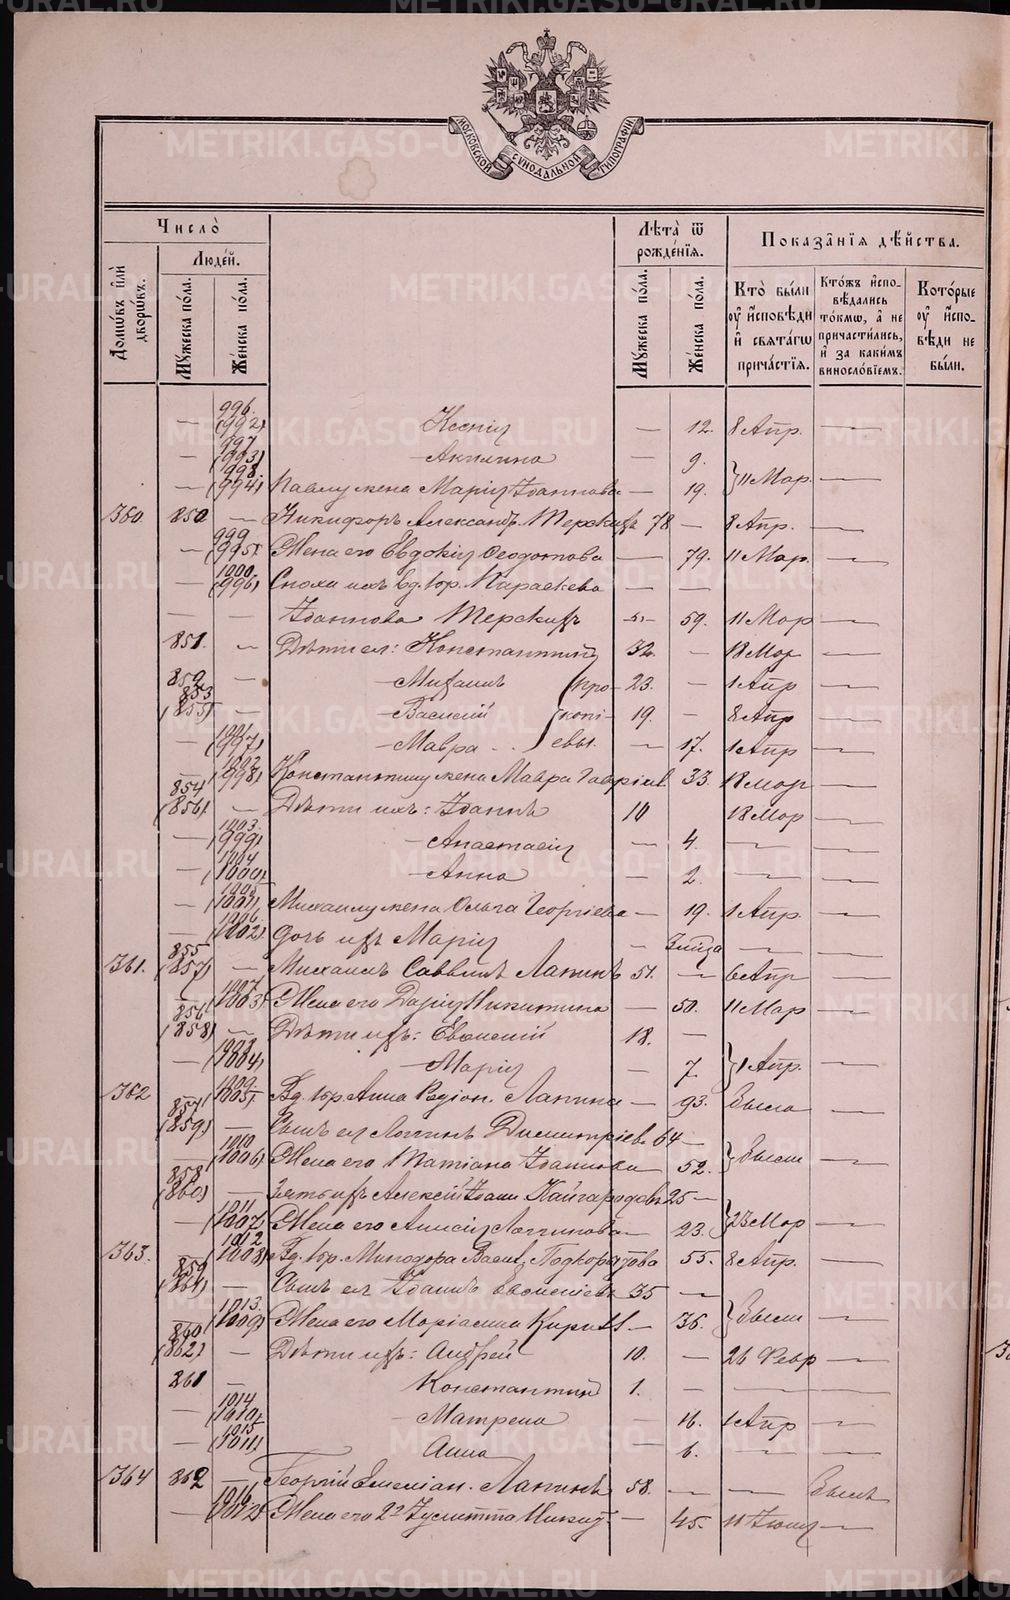 МОСКОВСКОЙ СѴНОДАЛЬНОЙ ТИПОГРАФІИ
Число̀
Людей.
Домѡвъ илѝ дворѡвъ.
Мꙋжеска по́ла.
Же́нска по́ла.
Лѣта̀ ѿ рожде́нїѧ.
Мꙋжеска по́ла.
Же́нска по́ла.
Показа̑нїѧ дѣ́йства.
Кто̀ бы́ли оу҆ и҆сповѣди и҆ свята́гѡ прича́стїѧ.
Кто́жъ и҆сповѣдались то́кмѡ, а҆ не причасти́лись, и҆ за каки́мъ винослóвїемъ.
Кото́рые оу҆ и҆споповѣди не бы́ли.
— 996. (992) Ксенія — 12. 8 Апр. —
— 997 (993) — Акилина — 9.
} 11 Мар. —
— 998 (994) Павлу жена Марія Іоаннова — 19.
360. 850 — Никифоръ Александр. Терскихъ 78 — 8 Апр. —
— 999 (995) Жена его Евдокія Ѳеодотова — 79. 11 Мар. —
— 1000 (996) Сноха ихъ вд. кр. Параскева — —
— — Іоаннова Терскихъ — 59. 11 Мар —
851. — Дѣти ея: Константинъ 32. — 18 Мар —
852 — — Михаилъ (про- 23. — 1 Апр —
853 (855) — — Василій копі- 19. — 8 Апр —
— (997) — Мавра . . евы. — 17. 1 Апр —
— 1002 (998) Константину жена Мавра Гавріил. 33. 18 мар —
854 (856) — Дѣти ихъ: Іоаннъ 10 18 Мар —
— 1003. (999) — Анастасія — 4. — —
— 1004 (1000) — Анна — 2. — —
— 1005 (1001) Михаилу жена Ольга Георгіева — 19. 1 Апр. —
— 1006. (1002) Дочь ихъ Марія — —
361. 855 (857) — Михаилъ Саввинъ Лапинъ 51. — 6 Апр —
— 1007 (1003) Жена его Дарія Никитина — 50. 11 Мар —
856 (858) — Дѣти ихъ: Евсигній 18. —
} 1 Апр. —
— (1004) — Марія — 7.
362 (1005) Вд. кр Анна Родіон. Лапина — 93. Была —
857 (859) — Сынъ ея Логгинъ Димитріев. 64 —
} Были —
— 1010 (1006) Жена его Татіана Іоаннова 52.
858 (860) — Зять ихъ Алексій Іоанн. Кайгородовъ 25 —
} 23 Мар —
— 1011 (1007) Жена его Анисія Логгинова — 23.
363. — 1012 (1008) Вд. кр. Минодора Васил. Подкорытова 55. 8 Апр. —
859 (861) — Сынъ ея Іоаннъ 35 —
} Были —
— 1013. (1009) Жена его Маріамна Кирил. — 36.
860 (862) — Дѣти ихъ: Андрей 10. — 26 Февр —
861 — Константинъ 1. — — —
— 1014 (1010) — Матрена — 16. 1 Апр —
— 1015 (1011) Анна — 6. — —
364 862 — Георгій Емеліан. Лапинъ 58. — — Былъ
— 1016 (1012) Жена его 2ª Іулитта Никит. — 45. 11 Іюня —
METRIKI.GASO-URAL.RU